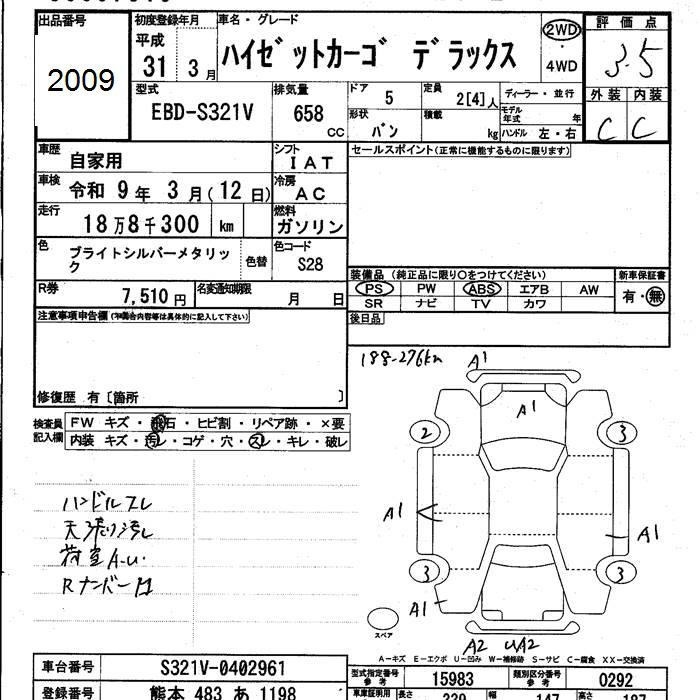 出品番号
2009
初度登録年月
平成
31 3 月
車名・グレード
ハイゼットカーゴ デラックス
2WD
・
4WD
評価点
3.5
外装 内装
C C
型式
EBD-S321V
排気量
658
CC
ドア
5
形状
バン
定員
2[4]人
積載
kg
ディーラー・並行
モデル年式 年
ハンドル 左・右
車歴
自家用
シフト
IAT
車検
令和 9 年 3 月(12 日)
冷房
AC
走行
18 万 8 千 300 km
燃料
ガソリン
色
ブライトシルバーメタリック
色替
色コード
S28
R券
7,510 円
名変通知期限
月 日
セールスポイント(正常に機能するものに限ります)
装備品 (純正品に限り○をつけてください)
PS PW ABS エアB AW
SR ナビ TV カワ
新車保証書
有・無
後日品
注意事項申告欄 (不具合内容等は具体的に記入して下さい)
修復歴 有〔箇所 〕
検査員記入欄
FW キズ・飛石・ヒビ割・リペア跡・×要
内装 キズ・汚レ・コゲ・穴・スレ・キレ・破レ
188-276km
A1
A1
2
3
A1
A1
3
3
A1
A2 UA2
ハンドルスレ
天張り汚レ
荷室A.u.
Rナンバー凹
スペア
A－キズ E－エクボ U－凹み W－補修跡 S－サビ C－腐食 XX－交換済
車台番号
S321V-0402961
登録番号
熊本 483 あ 1198
型式指定番号
参考
15983
類別区分番号
参考
0292
車車証明用
長さ
339
幅
147
高さ
187